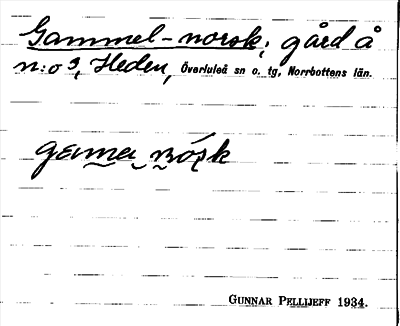 Gammel-norsk, gård å
n:o 3, Heden, Överluleå sn o. tg, Norrbottens län.
GUNNAR PELLIJEFF 1934.